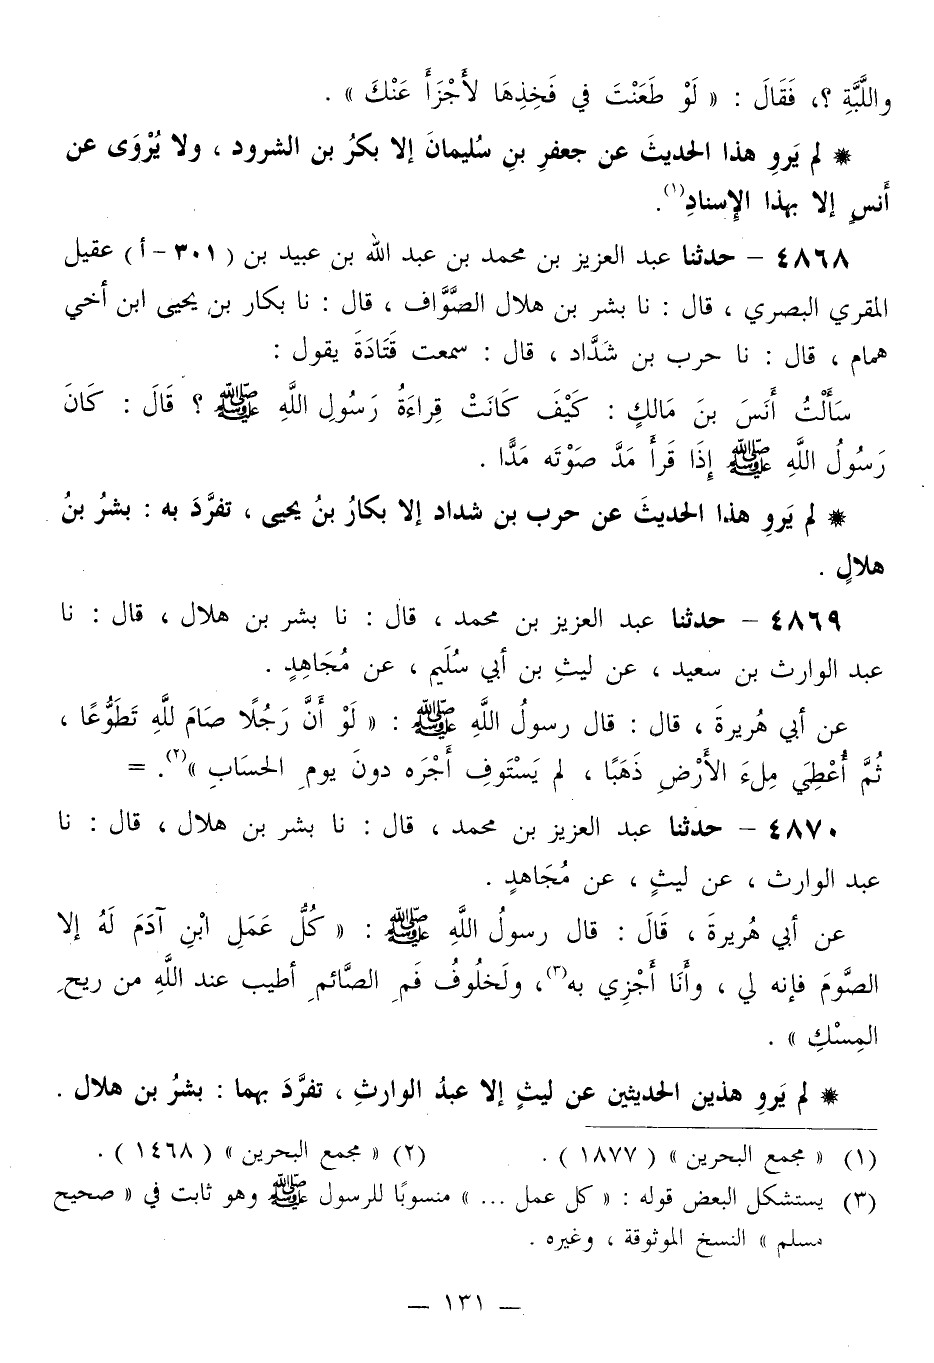 واللَّبَّةِ ؟، فَقَالَ : « لَوْ طَعَنْتَ في فَخِذِهَا لأَجْزَأَ عَنْكَ » .
✵ لم يَروِ هذا الحديثَ عن جعفرِ بنِ سُليمانَ إلا بكرُ بن الشرود ، ولا يُرْوَى عن
أَنسٍ إلا بهذا الإِسنادِ(١).
٤٨٦٨ – حدثنا عبد العزيز بن محمد بن عبد الله بن عبيد بن ( ٣٠١ – أ ) عقيل
المقري البصري ، قال : نا بشر بن هلال الصَّوَّاف ، قال : نا بكار بن يحيى ابن أخي
همام ، قال : نا حرب بن شَدَّاد ، قال : سمعت قَتَادَةَ يقول :
سَأَلْتُ أَنَسَ بنَ مَالكٍ : كَيْفَ كَانَتْ قِراءَةُ رَسُولِ اللَّهِ ﷺ ؟ قَالَ : كَانَ
رَسُولُ اللَّهِ ﷺ إِذَا قَرأَ مَدَّ صَوْتَه مَدًّا .
✵ لم يَروِ هذا الحديثَ عن حرب بن شداد إلا بكارُ بنُ يحيى ، تفرَّدَ به : بشرُ بنُ
هلالٍ .
٤٨٦٩ – حدثنا عبد العزيز بن محمد ، قال : نا بشر بن هلال ، قال : نا
عبد الوارث بن سعيد ، عن ليثِ بن أبي سُلَيم ، عن مُجَاهِدٍ .
عن أبي هُريرةَ ، قال : قال رسولُ اللَّهِ ﷺ : « لَوْ أَنَّ رَجُلًا صَامَ للَّهِ تَطَوُّعًا ،
ثُمَّ أُعْطِيَ مِلءَ الأَرْضِ ذَهَبًا ، لم يَسْتَوفِ أَجْرَه دونَ يومِ الحسَابِ »(٢). =
٤٨٧٠ – حدثنا عبد العزيز بن محمد ، قال : نا بشر بن هلال ، قال : نا
عبد الوارث ، عن ليثٍ ، عن مُجَاهدٍ .
عن أبي هُريرةَ ، قَالَ : قال رسولُ اللَّهِ ﷺ : « كُلُّ عَمَلِ ابْنِ آدَمَ لَهُ إلا
الصَّومَ فإنه لي ، وأَنَا أَجْزِي به(٣)، ولَخلُوفُ فَمِ الصَّائمِ أطيب عند اللَّهِ من ريحِ
المِسْكِ » .
✵ لم يَروِ هذين الحديثين عن ليثٍ إلا عبدُ الوارثِ ، تفرَّدَ بهما : بشرُ بن هلال .
(١) « مجمع البحرين » ( ١٨٧٧ ) . (٢) « مجمع البحرين » ( ١٤٦٨ ) .
(٣) يستشكل البعض قوله : « كل عمل ... » منسوبًا للرسول ﷺ وهو ثابت في « صحيح
مسلم » النسخ الموثوقة ، وغيره .
— ١٣١ —